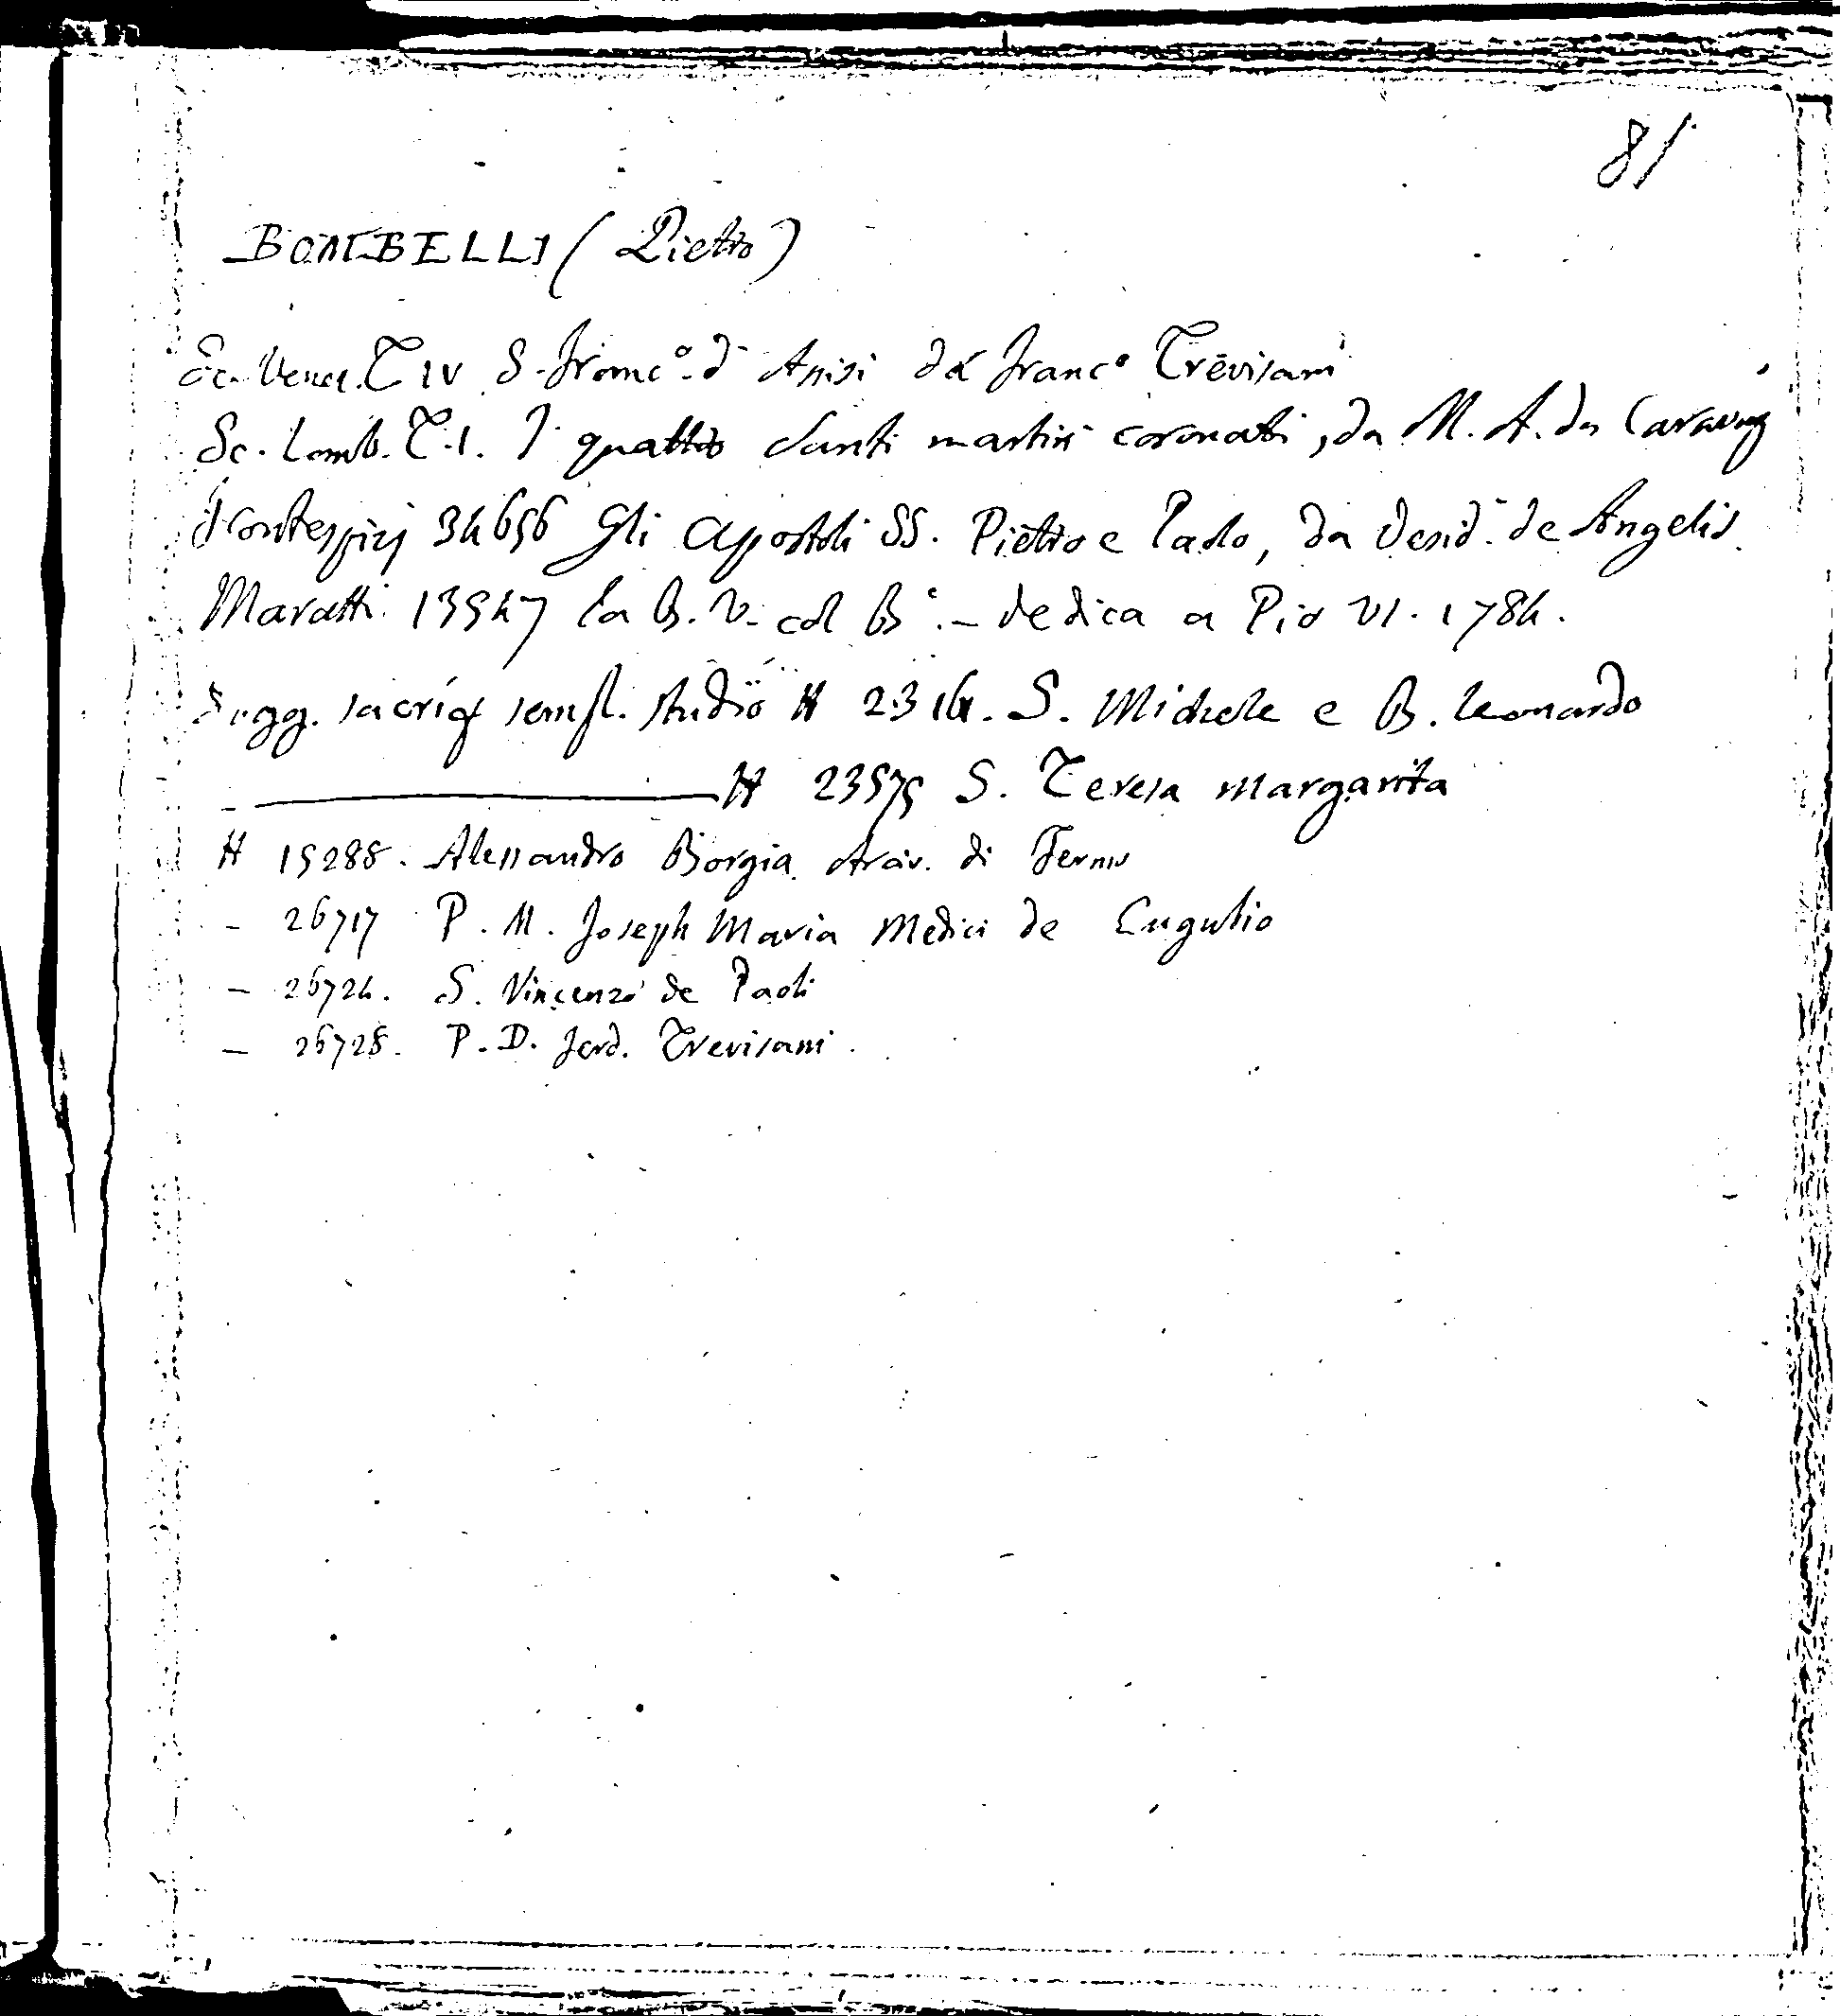 81
BOMBELLI (Pietro)
Sc. Venez. T IV S. Franc.º d'Assisi da Franc.º Trevisani
Sc. Lomb. T. I. I quattro Santi martiri coronati, da M. A. da Caravag
34656 Gli Apostoli SS. Pietro e Paolo, da Desid. de Angelis
Maratti. 13547 la B. V. col Bº. – dedica a Pio VI. 1784.
Sogg. sacri sempl. studio H 2314. S. Michele e B. Leonardo
— H 23575 S. Teresa Margarita
H 15288. Alessandro Borgia Arciv. di Fermo
– 26717 P. M. Joseph Maria Medici de Eugubio
– 26724. S. Vincenzo de Paoli
– 26728. P. D. Ferd. Trevisani.